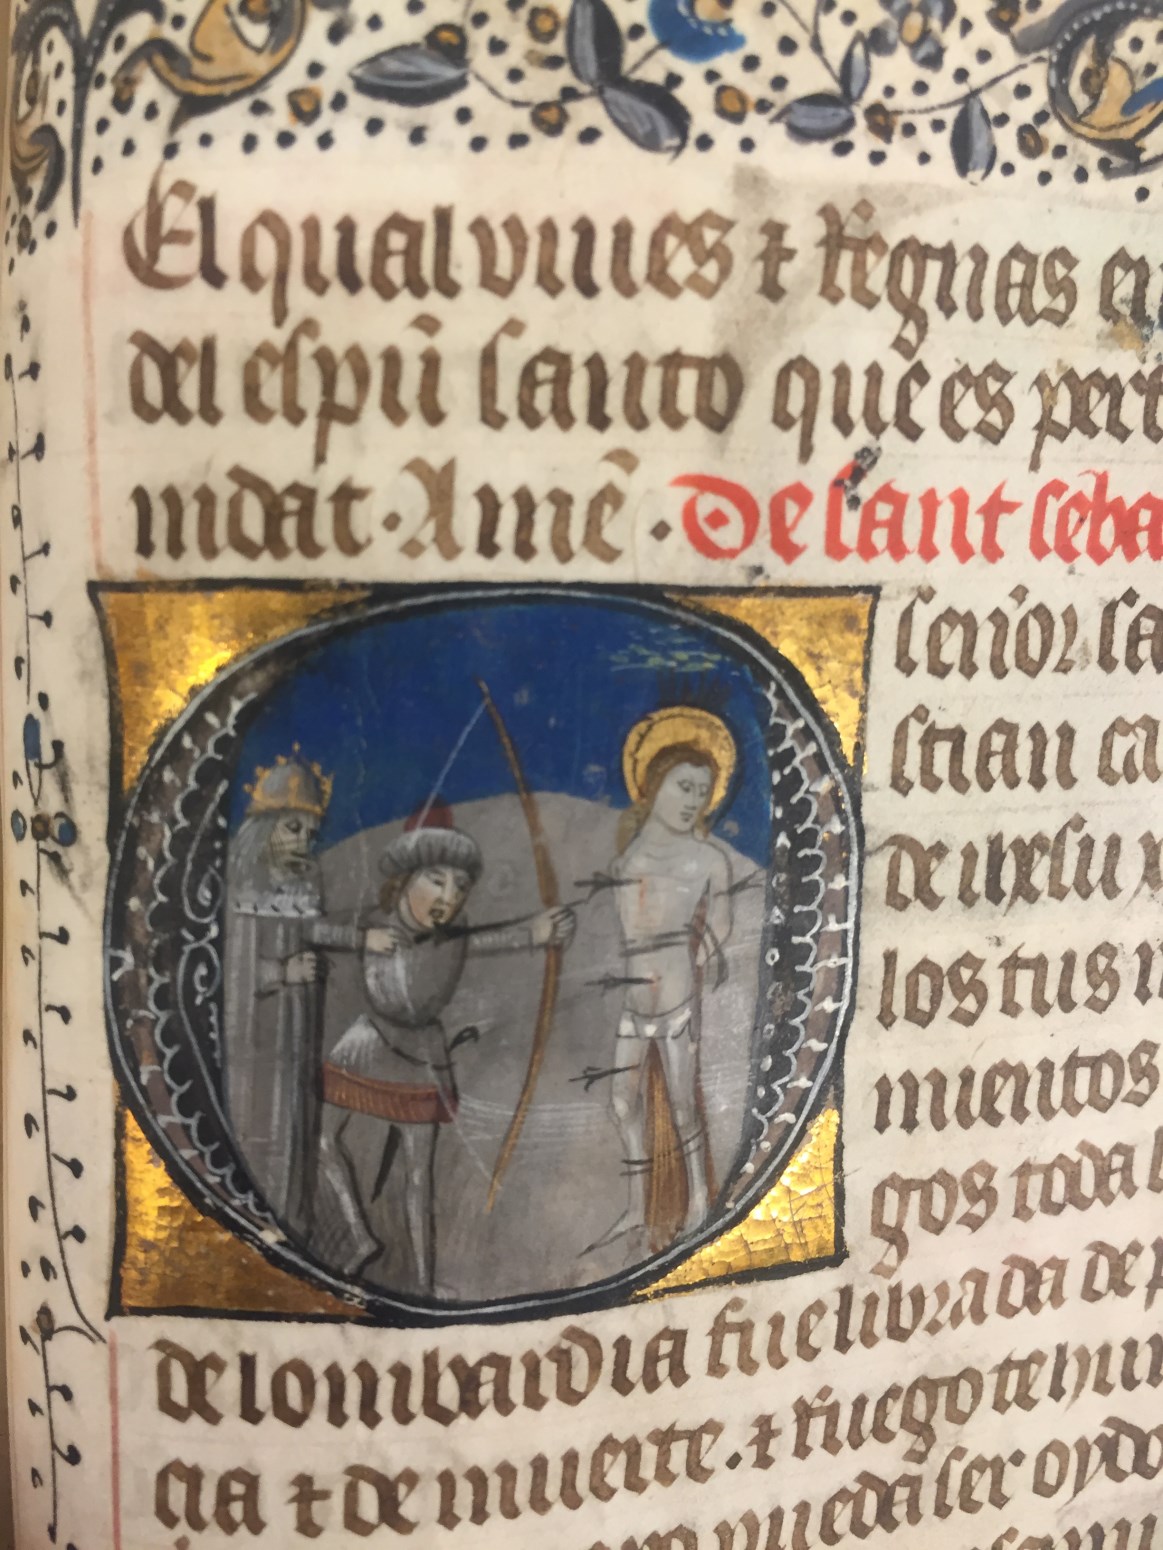 El qual viues ⁊ Regnas en
del espũ santo que es
nidat · Amẽ · De sant
señor
stian
de ihesu
los tus
mientos
gos toda
de lombardia fue librada de
cia ⁊ de muerte. ⁊ Ruego te
pueda ser oydo